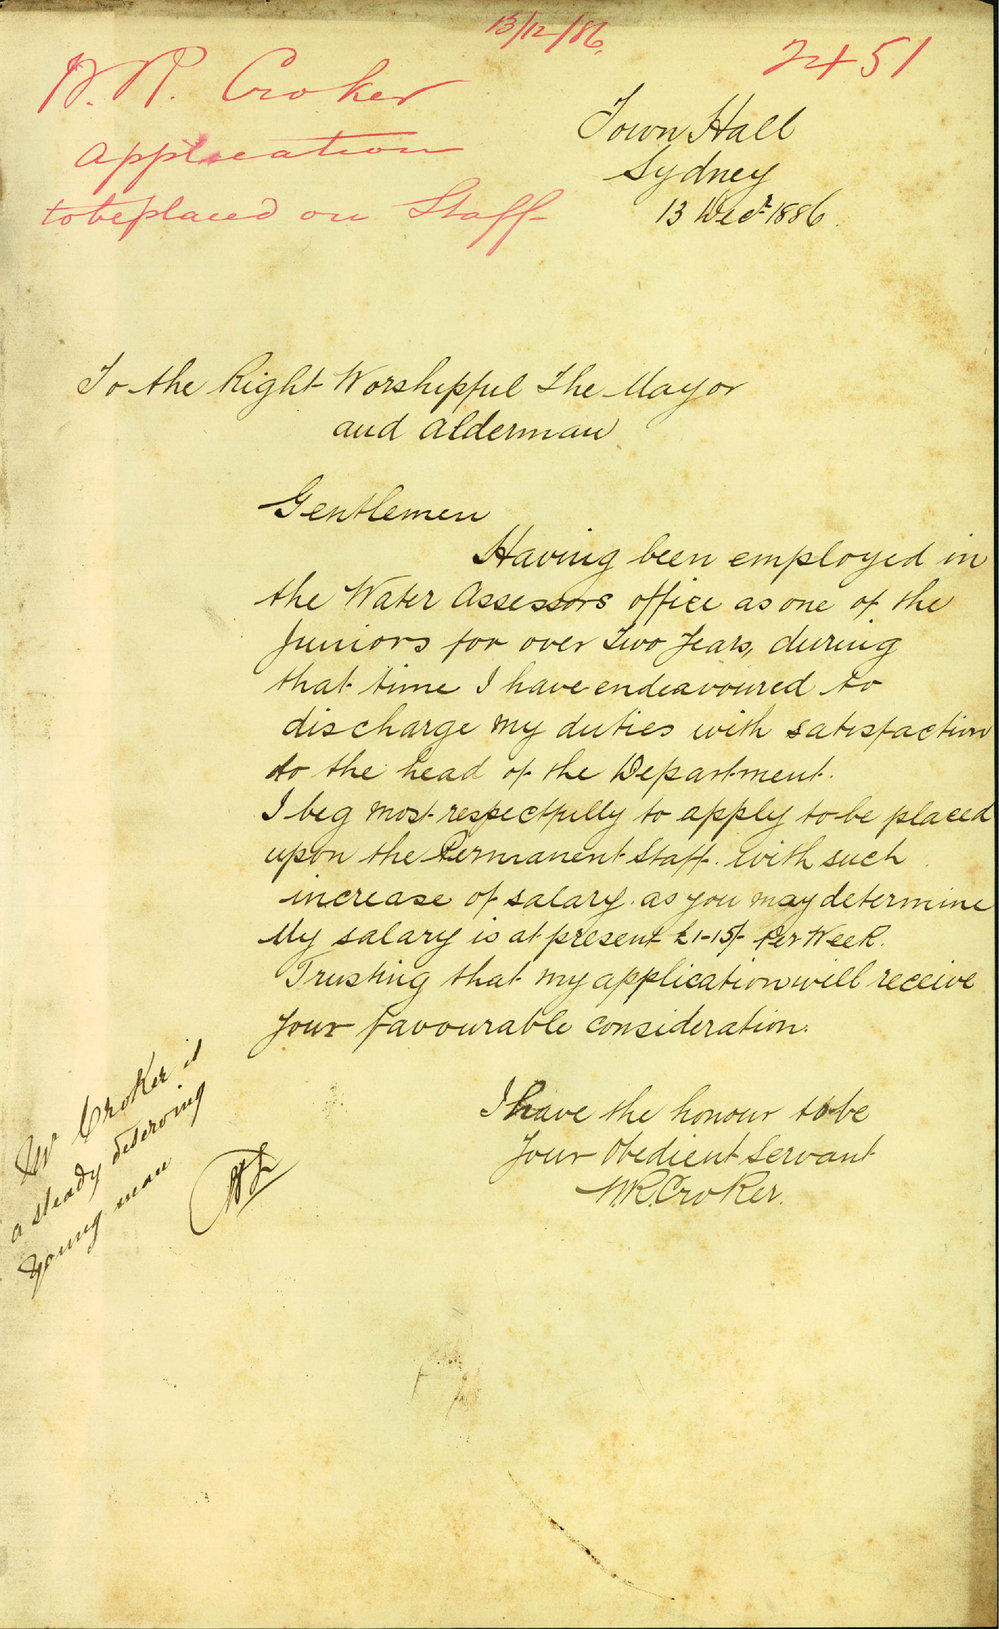 13/12/86.
2451
W. R. Croker
application
to be placed on Staff
Town Hall
Sydney
13 Decr 1886.
To the Right Worshipful The Mayor
and Alderman
Gentlemen
Having been employed in
the Water Assessors office as one of the
Juniors for over Two Years, during
that time I have endeavoured to
discharge my duties with satisfaction
to the head of the Department.
I beg most respectfully to apply to be placed
upon the Permanent Staff. with such
increase of salary. as you may determine
My salary is at present £1-15/- Per Week.
Trusting that my application will receive
Your favourable consideration.
I have the honour to be
Your Obedient Servant
W.R. Croker.
Mr Croker is
a steady deserving
young man